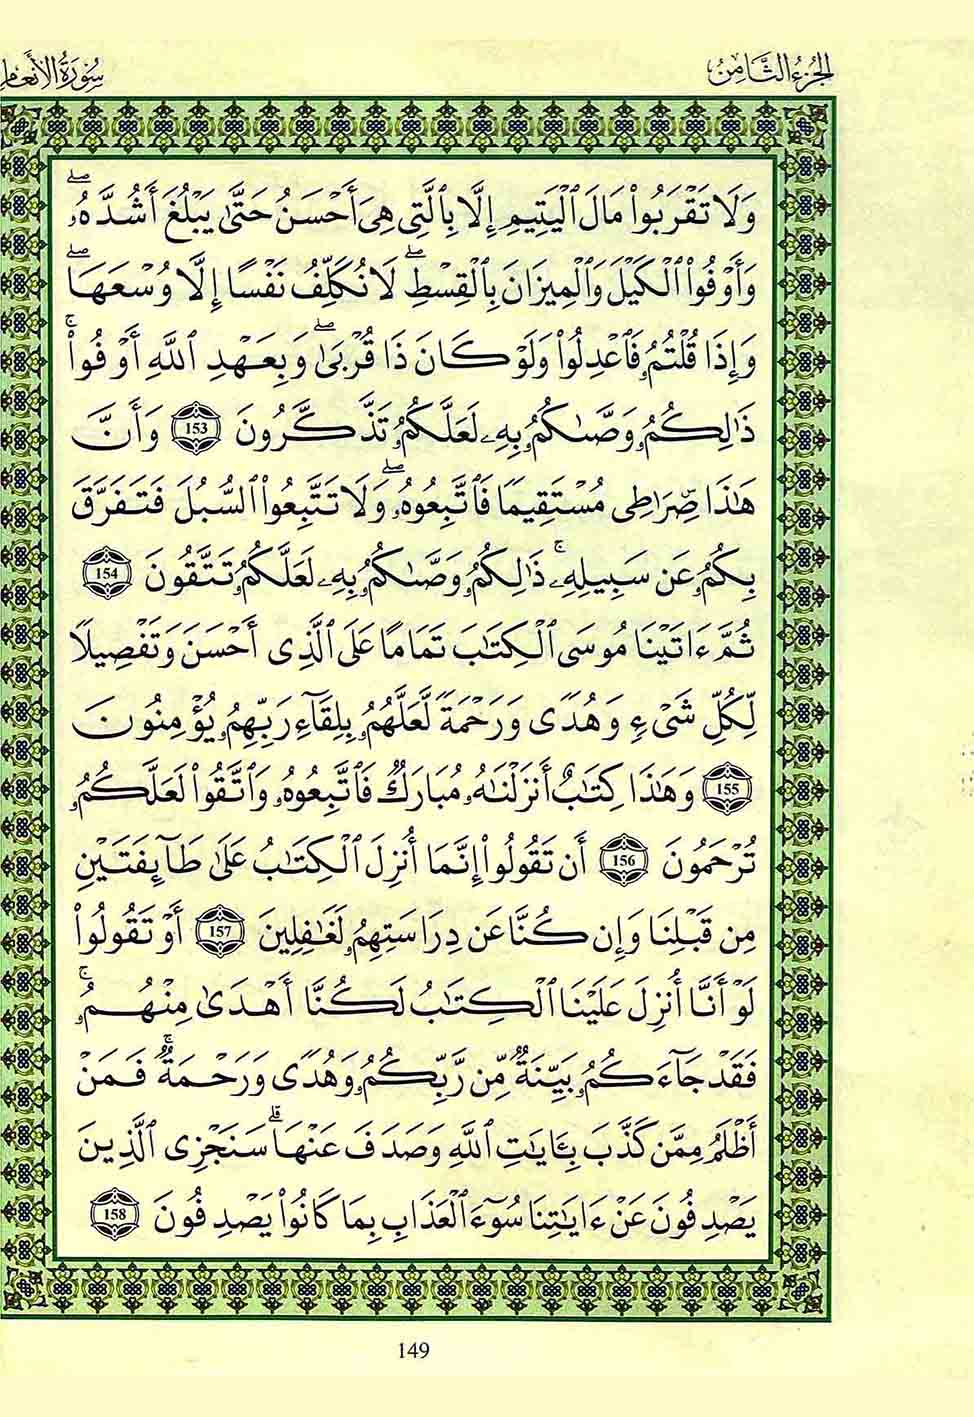 الجزء الثامن
سورة الأنعام
وَلَا تَقْرَبُوا۟ مَالَ ٱلْيَتِيمِ إِلَّا بِٱلَّتِى هِىَ أَحْسَنُ حَتَّىٰ يَبْلُغَ أَشُدَّهُۥ ۖ
وَأَوْفُوا۟ ٱلْكَيْلَ وَٱلْمِيزَانَ بِٱلْقِسْطِ ۖ لَا نُكَلِّفُ نَفْسًا إِلَّا وُسْعَهَا ۖ
وَإِذَا قُلْتُمُۥ فَٱعْدِلُوا۟ وَلَوْ كَانَ ذَا قُرْبَىٰ ۖ وَبِعَهْدِ ٱللَّهِ أَوْفُوا۟ ۚ
ذَٰلِكُمُۥ وَصَّىٰكُمُۥ بِهِۦ لَعَلَّكُمُۥ تَذَّكَّرُونَ 153 وَأَنَّ
هَٰذَا صِرَاطِى مُسْتَقِيمًا فَٱتَّبِعُوهُۥ ۖ وَلَا تَتَّبِعُوا۟ ٱلسُّبُلَ فَتَفَرَّقَ
بِكُمُۥ عَن سَبِيلِهِۦ ۚ ذَٰلِكُمُۥ وَصَّىٰكُمُۥ بِهِۦ لَعَلَّكُمُۥ تَتَّقُونَ 154
ثُمَّ ءَاتَيْنَا مُوسَى ٱلْكِتَٰبَ تَمَامًا عَلَى ٱلَّذِى أَحْسَنَ وَتَفْصِيلًا
لِّكُلِّ شَىْءٍ وَهُدًى وَرَحْمَةً لَّعَلَّهُمُۥ بِلِقَآءِ رَبِّهِمُۥ يُؤْمِنُونَ
155 وَهَٰذَا كِتَٰبٌ أَنزَلْنَٰهُۥ مُبَارَكٌ فَٱتَّبِعُوهُۥ وَٱتَّقُوا۟ لَعَلَّكُمُۥ
تُرْحَمُونَ 156 أَن تَقُولُوا۟ إِنَّمَا أُنزِلَ ٱلْكِتَٰبُ عَلَىٰ طَآئِفَتَيْنِ
مِن قَبْلِنَا وَإِن كُنَّا عَن دِرَاسَتِهِمُۥ لَغَٰفِلِينَ 157 أَوْ تَقُولُوا۟
لَوْ أَنَّا أُنزِلَ عَلَيْنَا ٱلْكِتَٰبُ لَكُنَّا أَهْدَىٰ مِنْهُمُۥ ۚ
فَقَدْ جَآءَكُمُۥ بَيِّنَةٌ مِّن رَّبِّكُمُۥ وَهُدًى وَرَحْمَةٌ ۚ فَمَنْ
أَظْلَمُ مِمَّن كَذَّبَ بِـَٔايَٰتِ ٱللَّهِ وَصَدَفَ عَنْهَا ۗ سَنَجْزِى ٱلَّذِينَ
يَصْدِفُونَ عَنْ ءَايَٰتِنَا سُوٓءَ ٱلْعَذَابِ بِمَا كَانُوا۟ يَصْدِفُونَ 158
149